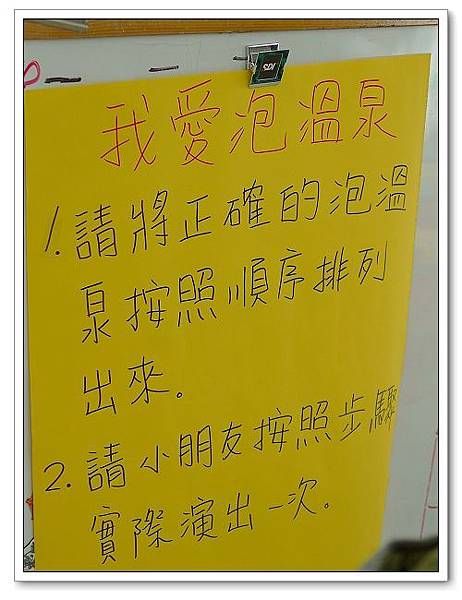 SDI
我愛泡溫泉
1.請將正確的泡溫
泉按照順序排列
出來。
2.請小朋友按照步驟
實際演出一次。